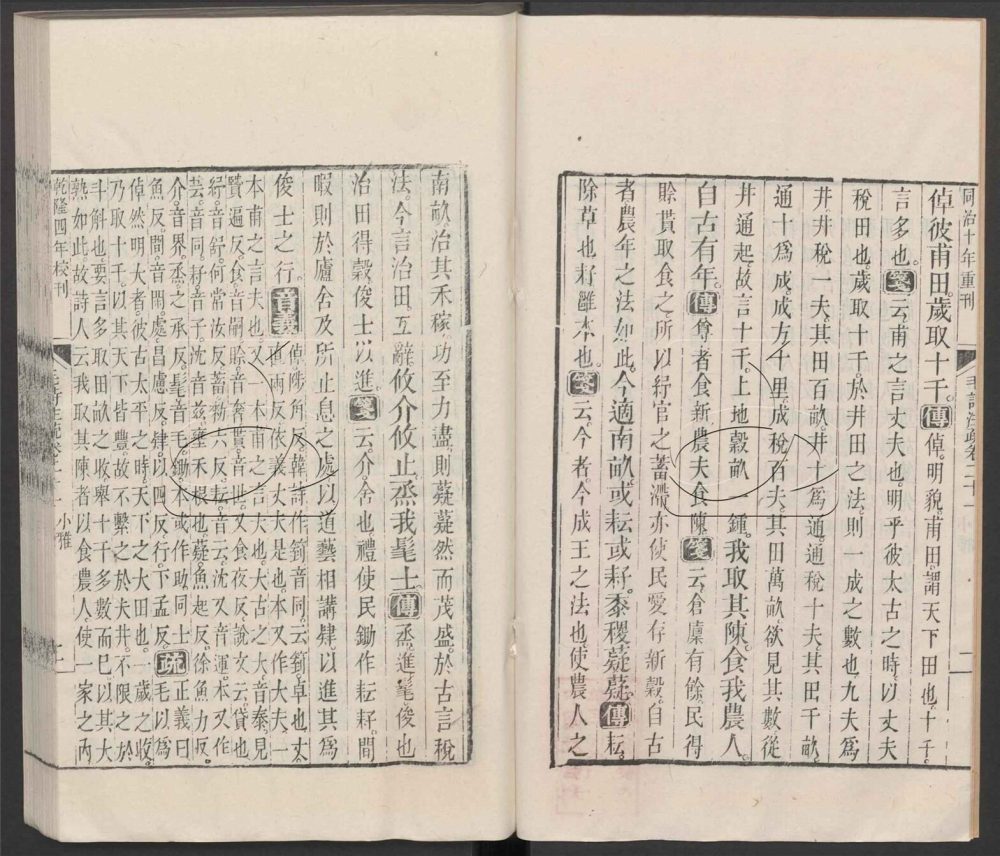 同治十年重刊
毛詩注疏卷二十一
二
倬彼甫田歲取十千。傳倬。明貌。甫田謂天下田也。十千。
言多也。箋云甫之言丈夫也。明乎彼太古之時。以丈夫
稅田也。歲取十千。於井田之法。則一成之數也。九夫爲
井。井稅一夫。其田百畝。井十爲通。通稅十夫。其田千畝。
通十爲成。成方十里。成稅百夫。其田萬畝。欲見其數。從
井通起。故言十千。上地穀畝一鍾。我取其陳。食我農人。
自古有年。傳尊者食新。農夫食陳。箋云。倉廩有餘。民得
賒貰取食之。所以紓官之蓄滯。亦使民愛存新穀。自古
者農年之法如此。今適南畝。或耘或耔。黍稷薿薿。傳耘。
除草也。耔雝本也。箋云。今者。今成王之法也。使農人之
南畝治其禾稼。功至力盡。則薿薿然而茂盛。於古言稅
法。今言治田。互辭。攸介攸止。烝我髦士。傳烝。進。髦。俊也
治田得穀。俊士以進。箋云。介。舍也。禮使民鋤作耘耔。間
暇則於廬舍及所止息之處。以道藝相講肄。以進其爲
俊士之行。音義倬陟角反韓詩作箌音同云箌卓也丈
直兩反依義丈夫是也本又作大夫一
本甫之言夫也。又一本甫之言大夫也。大古之大。音泰。見
賢遍反。食音嗣。賒音奢。貰音世。又食夜反。說文云。貸也
紓音舒。何常汝反。蓄勑六反。耘音云。沈又音運。本又作
芸。音同。耔音子。沈音兹。雍禾根也。薿魚起反。徐魚力反。
介音界。烝之承反。髦音毛。鋤本或作助。同。士
魚反。間音閑。處昌慮反。肄以四反。行下孟反。疏正義曰
毛以爲
倬然明大者。彼古太平之時。天下之大田也。一歲之收。
乃取十千。以其天下皆豐。故不繫之於夫井。不限之於
斗斛。要言多取田畝之收。舉十千多數而巳。以其大
熟如此。故詩人云我取其陳者以食農人。使一家之內
乾隆四年校刊
小雅
二